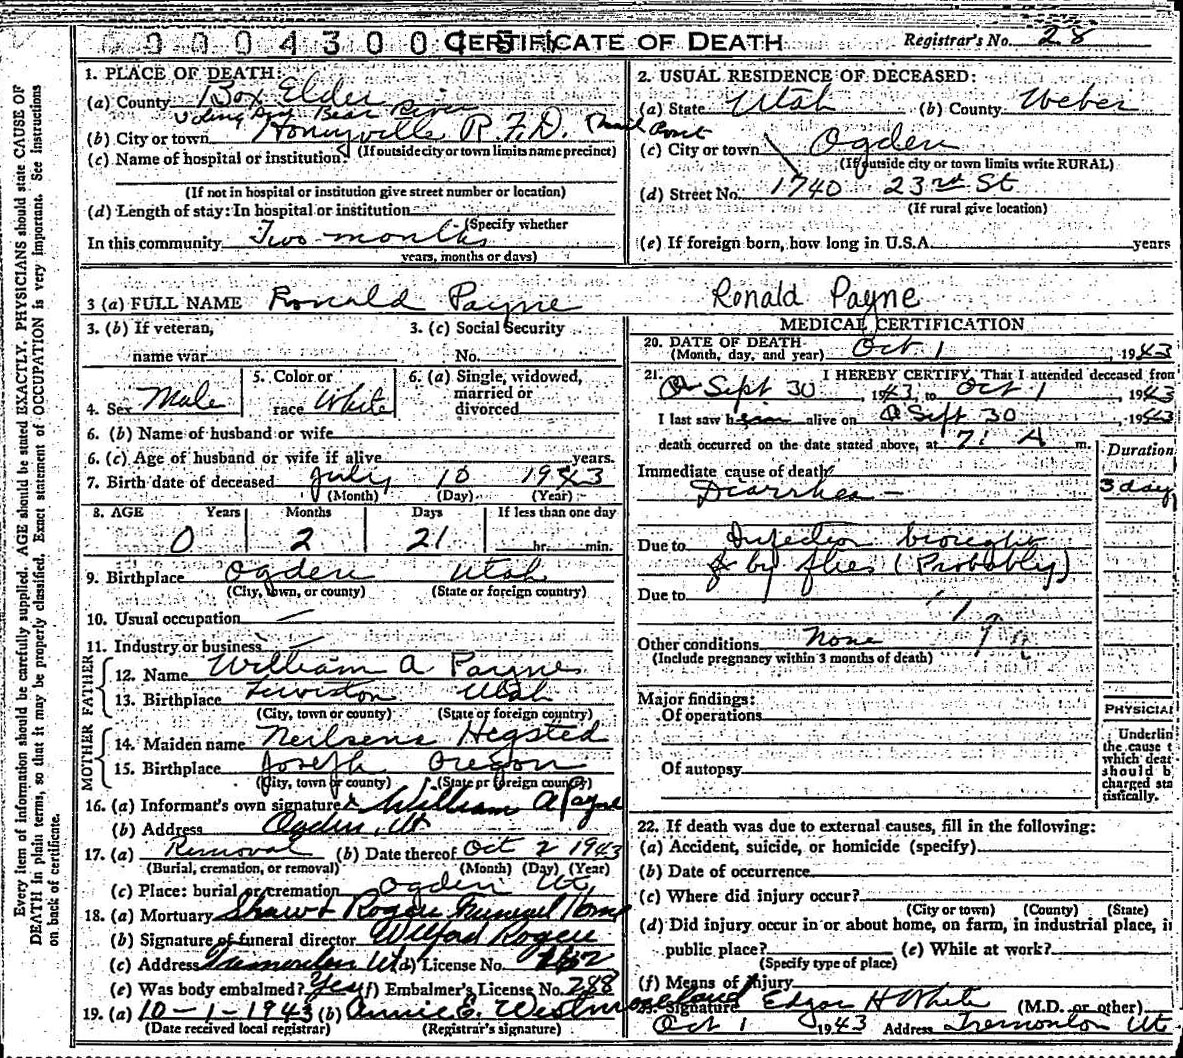 CERTIFICATE OF DEATH
Registrar's No. 28
Every item of information should be carefully supplied. AGE should be stated EXACTLY. PHYSICIANS should state CAUSE OF
DEATH in plain terms, so that it may be properly classified. Exact statement of OCCUPATION is very important. See instructions
on back of certificate.
1. PLACE OF DEATH:
(a) County Box Elder
Bear River
(b) City or town Honeyville R.F.D.
(If outside city or town limits name precinct)
(c) Name of hospital or institution:
(If not in hospital or institution give street number or location)
(d) Length of stay: In hospital or institution
(Specify whether
In this community Two months
years, months or days)
2. USUAL RESIDENCE OF DECEASED:
(a) State Utah (b) County Weber
(c) City or town Ogden
(If outside city or town limits write RURAL)
(d) Street No. 1740 23rd St
(If rural give location)
(e) If foreign born, how long in U.S.A. years
3 (a) FULL NAME Ronald Payne Ronald Payne
3. (b) If veteran,
name war
3. (c) Social Security
No.
4. Sex Male
5. Color or
race White
6. (a) Single, widowed,
married or
divorced
6. (b) Name of husband or wife
6. (c) Age of husband or wife if alive years.
7. Birth date of deceased July 10 1943
(Month) (Day) (Year)
8. AGE Years Months Days If less than one day
0 2 21 hr. min.
9. Birthplace Ogden Utah
(City, town, or county) (State or foreign country)
10. Usual occupation
11. Industry or business
FATHER
12. Name William A Payne
13. Birthplace Lewiston Utah
(City, town or county) (State or foreign country)
MOTHER
14. Maiden name Neilsena Hegsted
15. Birthplace Joseph Oregon
(City, town or county) (State or foreign country)
16. (a) Informant's own signature x William A Payne
(b) Address Ogden, Ut
17. (a) Removal (b) Date thereof Oct 2 1943
(Burial, cremation, or removal) (Month) (Day) (Year)
(c) Place: burial or cremation Ogden Ut,
18. (a) Mortuary Shaw & Rogers Funeral Home
(b) Signature of funeral director Wilford Rogers
(c) Address Tremonton Ut (d) License No.
(e) Was body embalmed? Yes (f) Embalmer's License No. 288
19. (a) 10-1-1943 (b) Annie E. Westmoreland
(Date received local registrar) (Registrar's signature)
MEDICAL CERTIFICATION
20. DATE OF DEATH
(Month, day, and year) Oct 1, 1943
21. I HEREBY CERTIFY, That I attended deceased from
Sept 30, 1943, to Oct 1, 1943
I last saw him alive on Sept 30, 1943
death occurred on the date stated above, at 7: A m.
Duration
Immediate cause of death
Diarrhea - 3 day
Due to Infection brought
by flies (Probably)
Due to
Other conditions None
(Include pregnancy within 3 months of death)
Major findings:
Of operations
Of autopsy
PHYSICIAN
Underlin
the cause t
which deat
should b
charged sta
tistically.
22. If death was due to external causes, fill in the following:
(a) Accident, suicide, or homicide (specify)
(b) Date of occurrence
(c) Where did injury occur?
(City or town) (County) (State)
(d) Did injury occur in or about home, on farm, in industrial place, in
public place? (e) While at work?
(Specify type of place)
(f) Means of Injury
23. Signature Edgar H White (M.D. or other)
Oct 1 1943 Address Tremonton Ut